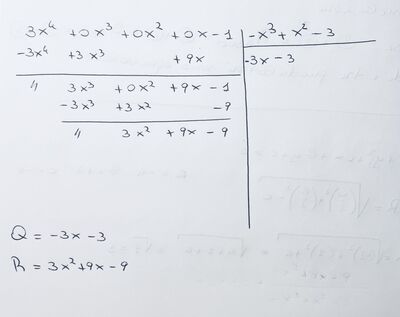 3x⁴ +0x³ +0x² +0x -1 | -x³ + x² - 3
-3x⁴ +3x³ +9x | -3x - 3
// 3x³ +0x² +9x -1
-3x³ +3x² -9
// 3x² +9x -9
Q = -3x - 3
R = 3x² +9x - 9